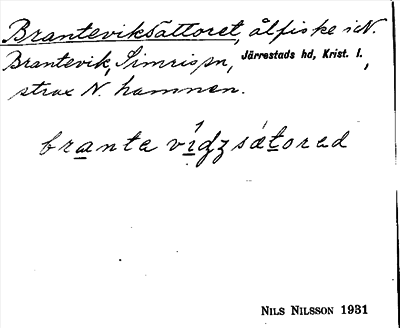 Branteviksåttoret, ålfiske i N.
Brantevik, Simris sn, Järrestads hd, Krist. l.,
strax N. hamnen.
branta vídzsátorad
NILS NILSSON 1931